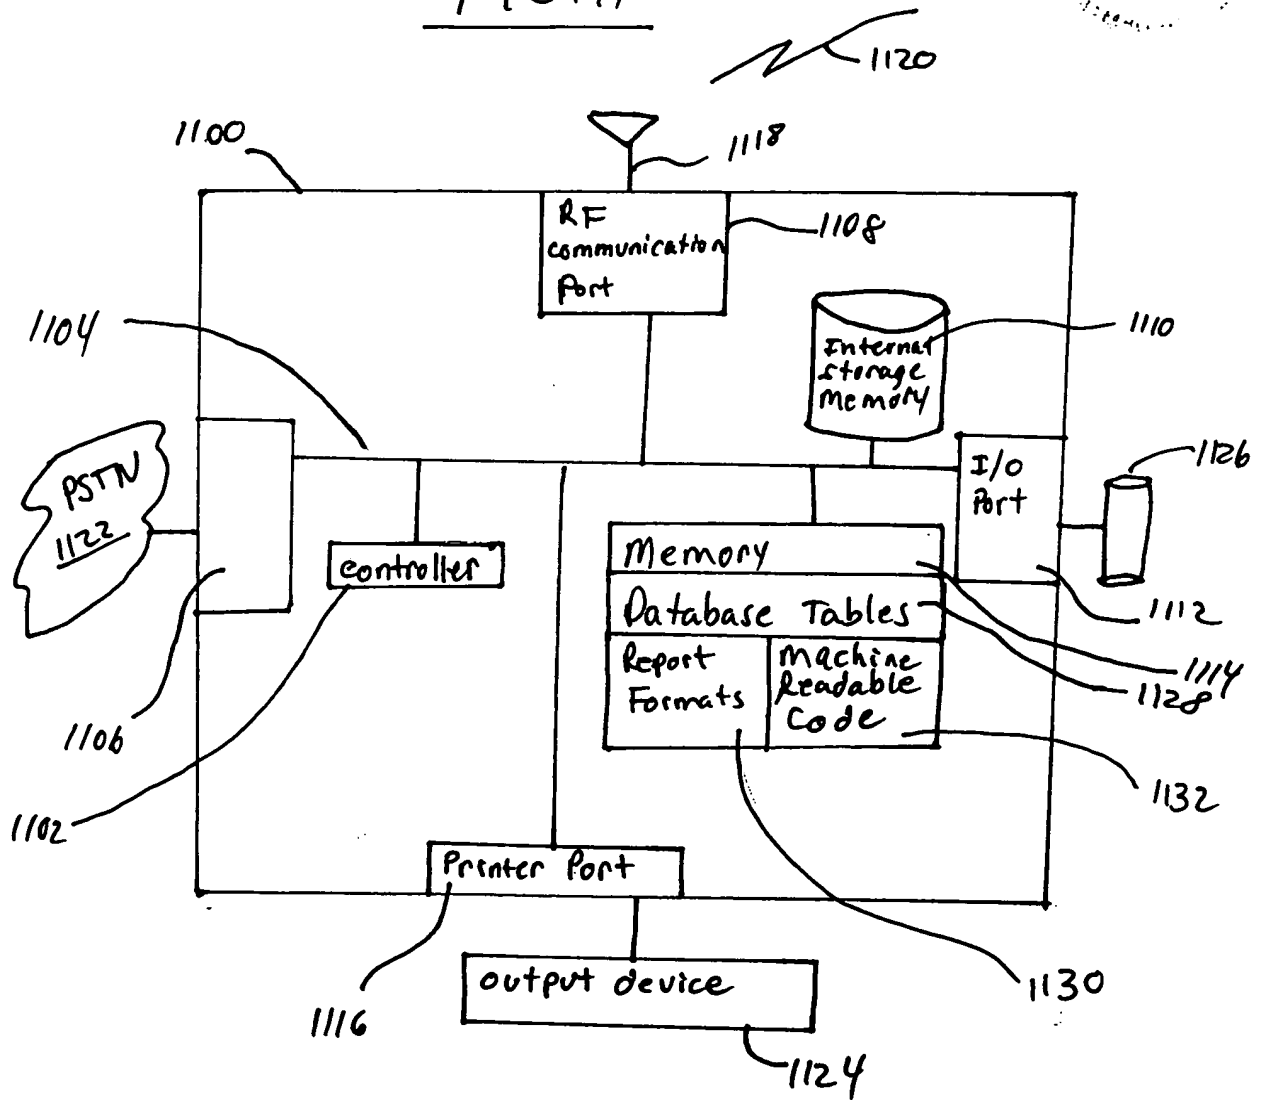 1120
1100
1118
RF
communication
Port
1108
1104
Internal
storage
Memory
1110
PSTN
1122
I/O
Port
1126
controller
Memory
Database Tables
Report
Formats
Machine
Readable
Code
1112
1114
1128
1106
1102
1132
Printer Port
output device
1130
1116
1124